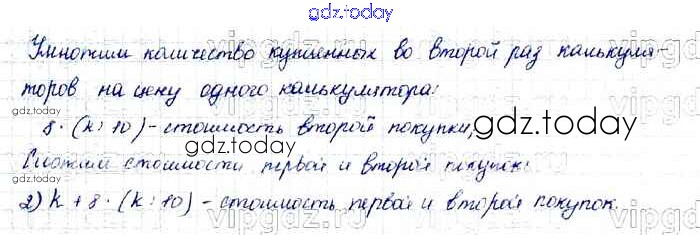 gdz.today
Умножим количество купленных во второй раз калькуля-
торов на цену одного калькулятора:
8 · (k : 10) - стоимость второй покупки,
Сложим стоимости первой и второй покупок:
2) k + 8 · (k : 10) - стоимость первой и второй покупок.
gdz.today
gdz.today
gdz.today
gdz.today
gdz.today
gdz.today